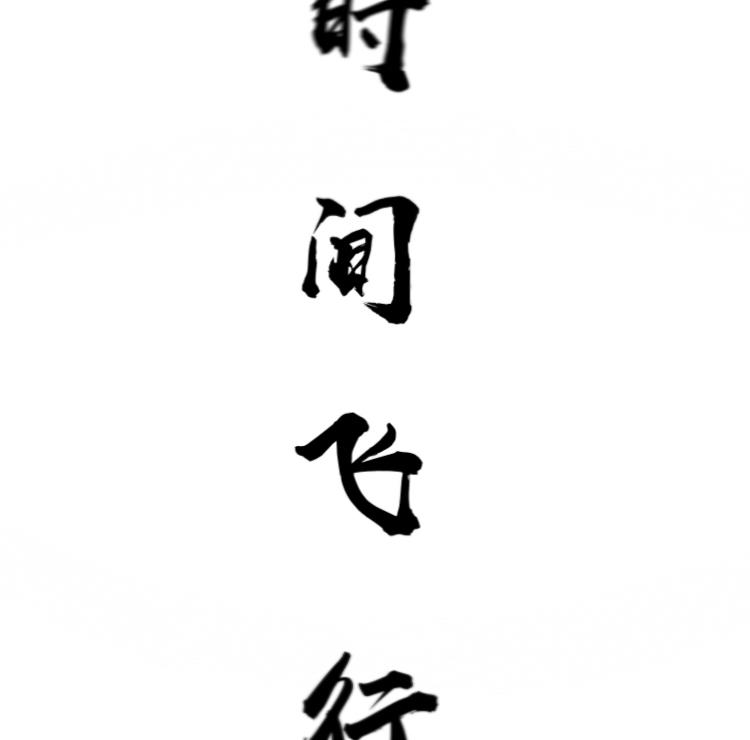 时
间
飞
行